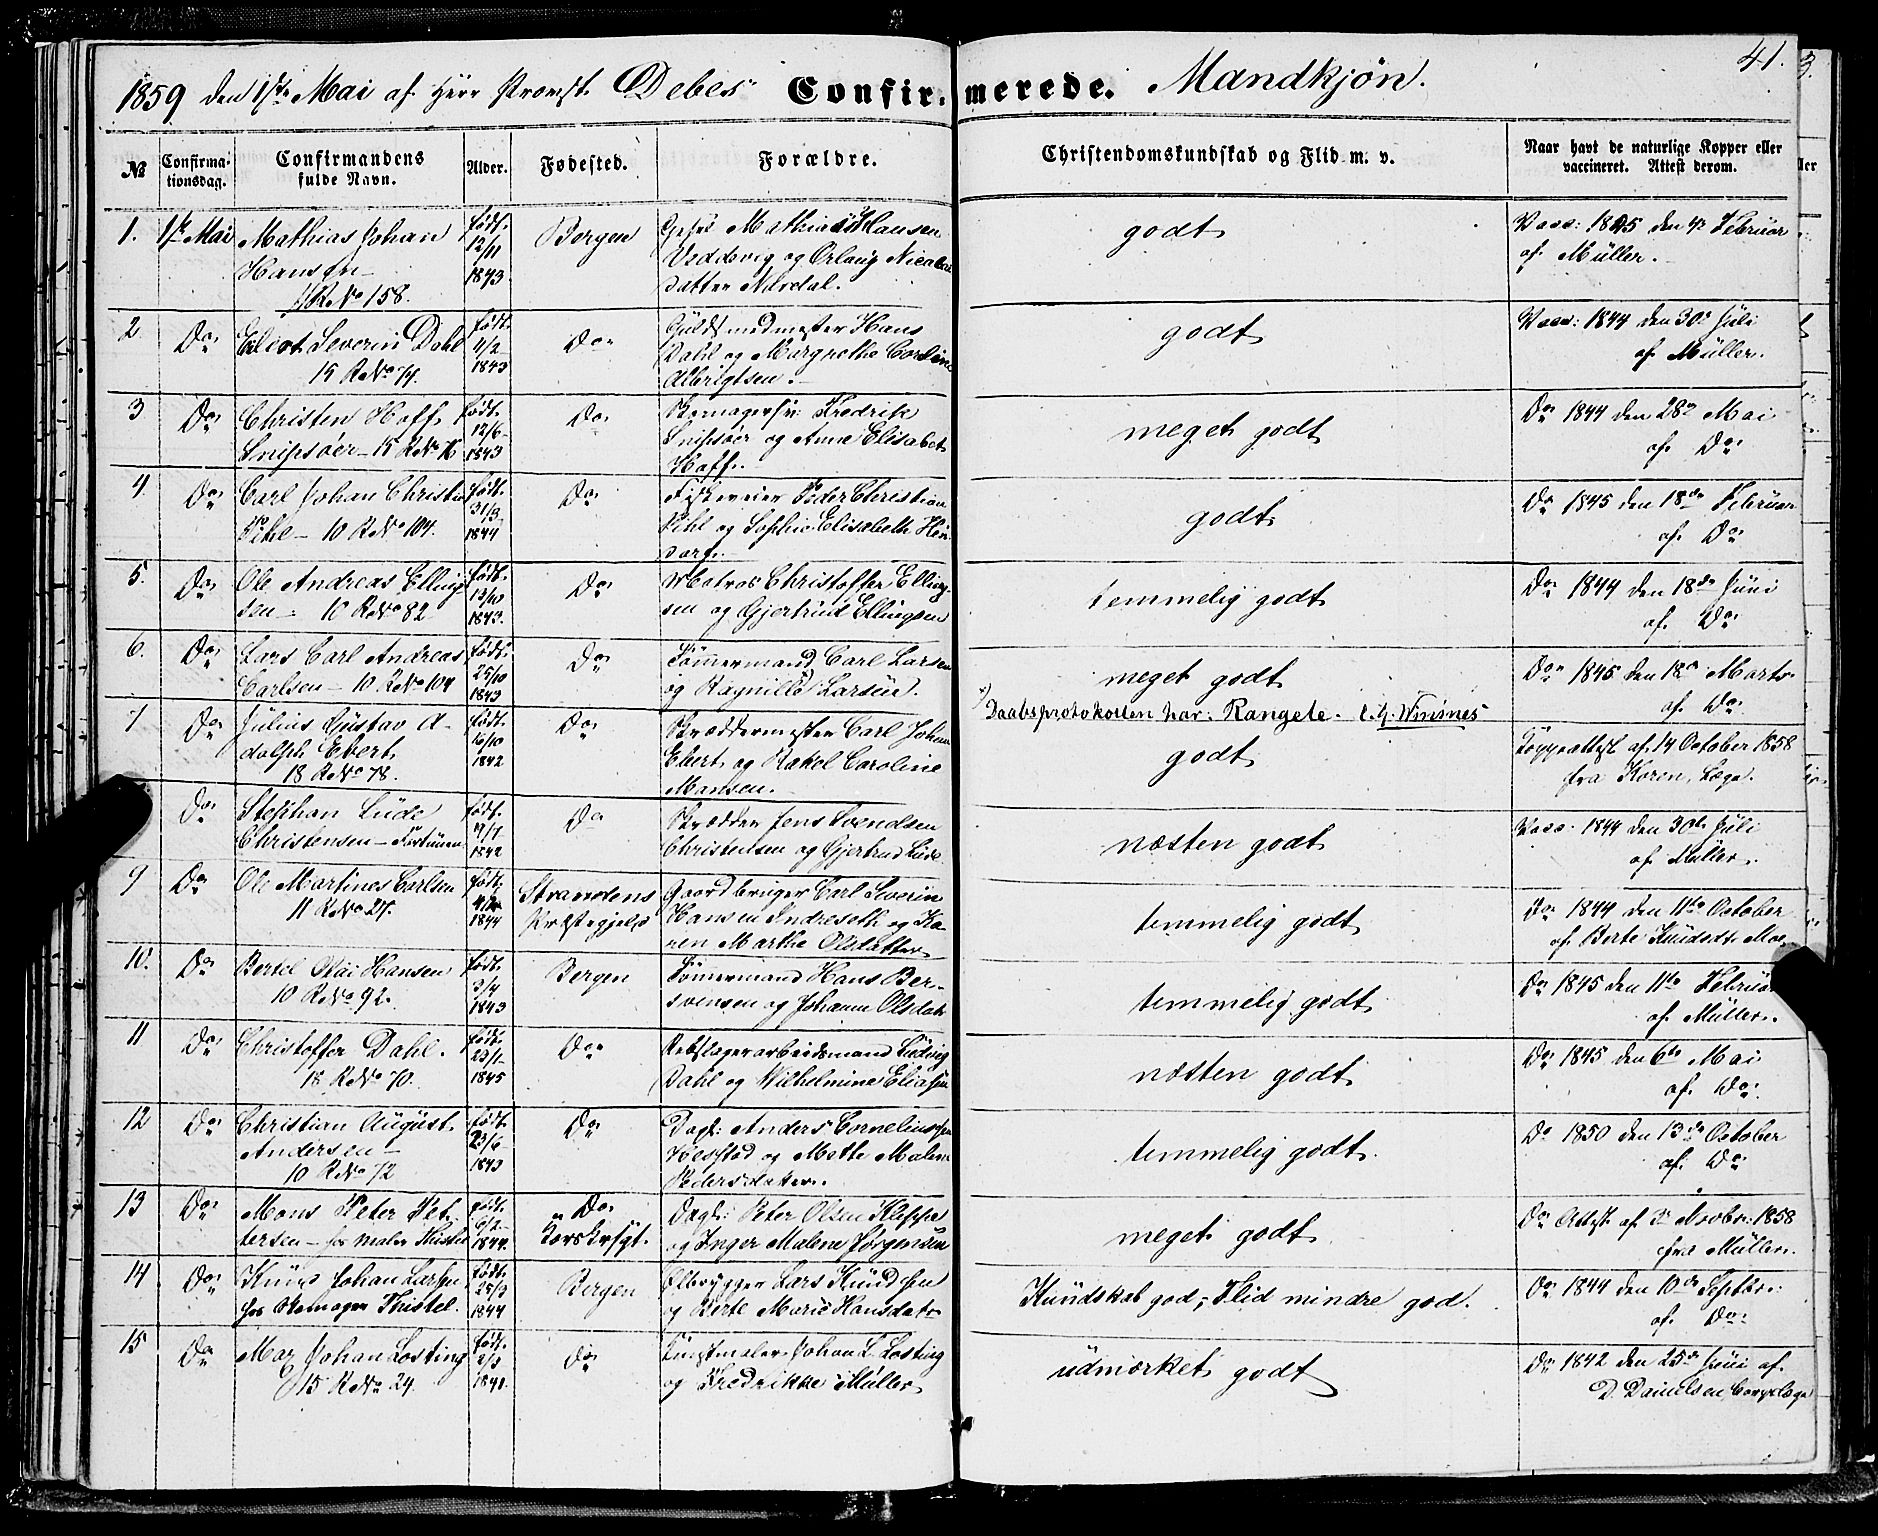 41.
1859 den 1ste Mai af Herr Provst Debes Confirmerede. Mandkjøn.
№ Confirmationsdag. Confirmandens fulde Navn. Alder. Fødested. Forældre. Christendomskundskab og Flid m. v. Naar havt de naturlige Kopper eller vaccineret. Attest derom.
1. 1ste Mai Mathias Johan født Bergen Mathias Hansen godt Vacc: 1845 den 4de Februar
Hansen 12/11 og Orlaug Nicolai af Müller.
R No 158. 1843 datter
2 Do Severin Dahl født Do Guldsmedmester Hans godt Vacc: 1844 den 30te Juli
15 R No 74. 4/2 Dahl og Margrethe af Müller.
1843 Albrigtsen.
3 Do Christen Hoff født Do Skomagersv: Fredrik meget godt Do 1844 den 28de Mai
Snipsöer 15 R No 16 12/6 Snipsöer og Anne Elisabet af Do
1843 Hoff.
4. Do Carl Johan Christian født Do Peder Christian godt Do 1845 den 18de Februar
Pihl 10 R No 104. 31/3 Pihl og Sophie Elisabeth af Do
1844
5. Do Ole Andreas Elling født Do Matros Christoffer Elling temmelig godt Do 1844 den 18de Juni
sen 10 R No 82 13/10 sen og Gjertrud Ellingsen af Do
1843.
6. Do Lars Carl Andreas født Do Tömmermand Carl Larsen meget godt Do 1845 den 18de Marts
Carlsen 10 R No 104 25/10 og Ragnille Larsen. af Do
1843 Daabsprotokollen har: Rangele.
7 Do Julius Gustav A- født Do Skræddermester Carl Johan godt Koppeattest af 14 October 1858
dolph Ebert 16/10 Ebert og Rakel Caroline fra Koren, Læge.
18 R No 78. 1842 Mansen.
Do Stephan Lude født Do Skrædder Jens Svendsen næsten godt Vacc. 1844 den 30te Juli
Christensen 1842 Christensen og Gjertrud Lude af Müller.
9 Do Ole Martines Carlsen født Strandens Gaardbruger Carl Severin temmelig godt Do 1844 den 11te October
11 R No 27. 1844 Præstegjeld Hansen Indreseth og Ka- af Berte Knudsdt. Moe
ren Marthe Olsdatter
10. Do Bertel Olai Hansen født Bergen Tömmermand Hans Ber- temmelig godt Do 1845 den 11te Februar
10 R No 92. 3/4 svensen og Johanne Olsdatr af Müller.
1843
11 Do Christoffer Dahl. født Do Rebslagerarbeidsmand Ludvig næsten godt Do 1845 den 6te Mai
18 R No 70. 23/1 Dahl og Wilhelmine Eliasen af Do.
1845
12 Do Christian August født Do Dagl: Anders Corneliussen temmelig godt. Do 1850 den 13de October
Andersen 23/6 og Mette Malene af Do
10 R No 72 1843 Pedersdatter.
13 Do Mons Peter Pet født Do Dagl: Peter Olsen Kleppe meget godt Do Attest af 3de Novbr: 1858
tersen 6/2 Korskirkgt. og Inger Malene Jörgensen fra Müller.
1844.
14 Do Knud Johan Larsen født Bergen Ølbrygger Lars Knudsen Kundskab god, Flid mindre god. Do 1844 den 10de Septbr:
hos Skomager Thistel. 25/3 og Berte Marie Hansdatr af Do
1844
15 Do Max Johan Losting født Do Kunstmaler Johan L. Losting udmærket godt Do 1842 den 25de Juni af
15 R No 24. 2/3 og Fredrikke Müller. D. Danielsen Corpslæge
1841.